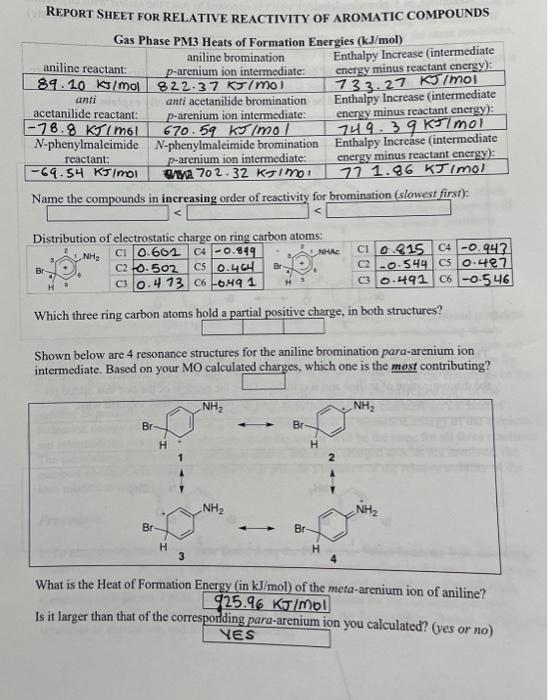 REPORT SHEET FOR RELATIVE REACTIVITY OF AROMATIC COMPOUNDS
Gas Phase PM3 Heats of Formation Energies (kJ/mol)
aniline reactant:
aniline bromination
p-arenium ion intermediate:
Enthalpy Increase (intermediate
energy minus reactant energy):
89.10 KJ/mol
822.37 KJ/mol
733.27 KJ/mol
anti
acetanilide reactant:
anti acetanilide bromination
p-arenium ion intermediate:
Enthalpy Increase (intermediate
energy minus reactant energy):
-78.8 KJ/mol
670.59 KJ/mol
749.39 KJ/mol
N-phenylmaleimide
reactant:
N-phenylmaleimide bromination
p-arenium ion intermediate:
Enthalpy Increase (intermediate
energy minus reactant energy):
-69.54 KJ/mol
702.32 KJ/mol
771.86 KJ/mol
Name the compounds in increasing order of reactivity for bromination (slowest first):
< <
Distribution of electrostatic charge on ring carbon atoms:
Br H NH2 2 3 4 5 6 +
C1 0.662 C4 -0.899
C2 -0.502 C5 0.464
C3 0.473 C6 -0.491
Br H NHAc +
C1 0.815 C4 -0.947
C2 -0.544 C5 0.487
C3 0.492 C6 -0.546
Which three ring carbon atoms hold a partial positive charge, in both structures?
Shown below are 4 resonance structures for the aniline bromination para-arenium ion
intermediate. Based on your MO calculated charges, which one is the most contributing?
NH2 NH2
Br Br
H H
1 2
NH2 NH2
Br Br
H H
3 4
What is the Heat of Formation Energy (in kJ/mol) of the meta-arenium ion of aniline?
925.96 KJ/mol
Is it larger than that of the corresponding para-arenium ion you calculated? (yes or no)
YES